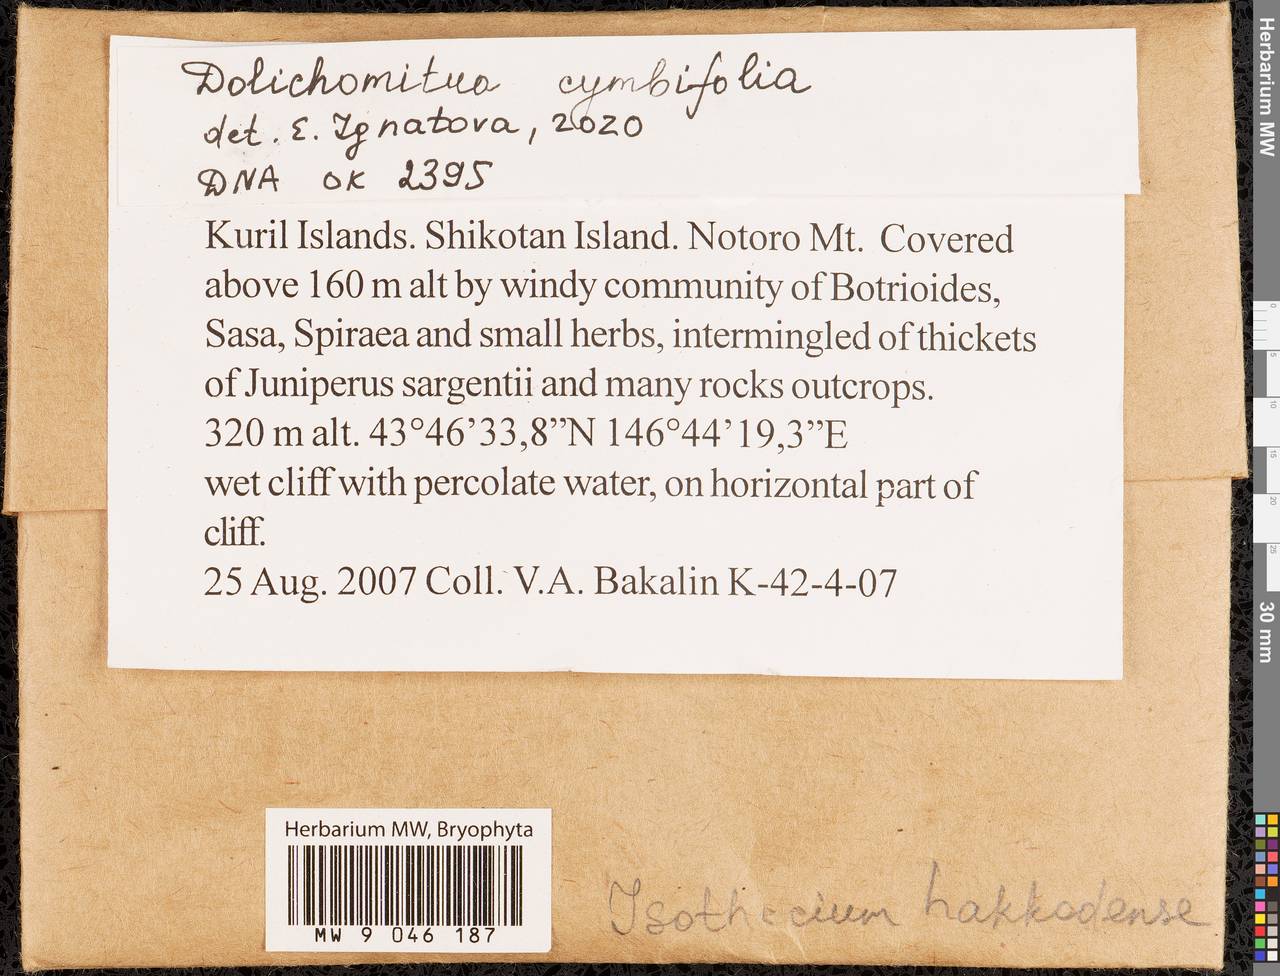 Dolichomitua cymbifolia
det. E. Ignatova, 2020
DNA OK 2395
Kuril Islands. Shikotan Island. Notoro Mt. Covered
above 160 m alt by windy community of Botrioides,
Sasa, Spiraea and small herbs, intermingled of thickets
of Juniperus sargentii and many rocks outcrops.
320 m alt. 43°46’33,8”N 146°44’19,3”E
wet cliff with percolate water, on horizontal part of
cliff.
25 Aug. 2007 Coll. V.A. Bakalin K-42-4-07
Herbarium MW, Bryophyta
MW 9 046 187
Isothecium hakkodense
Herbarium MW
0
5
10
15
20
25
30 mm